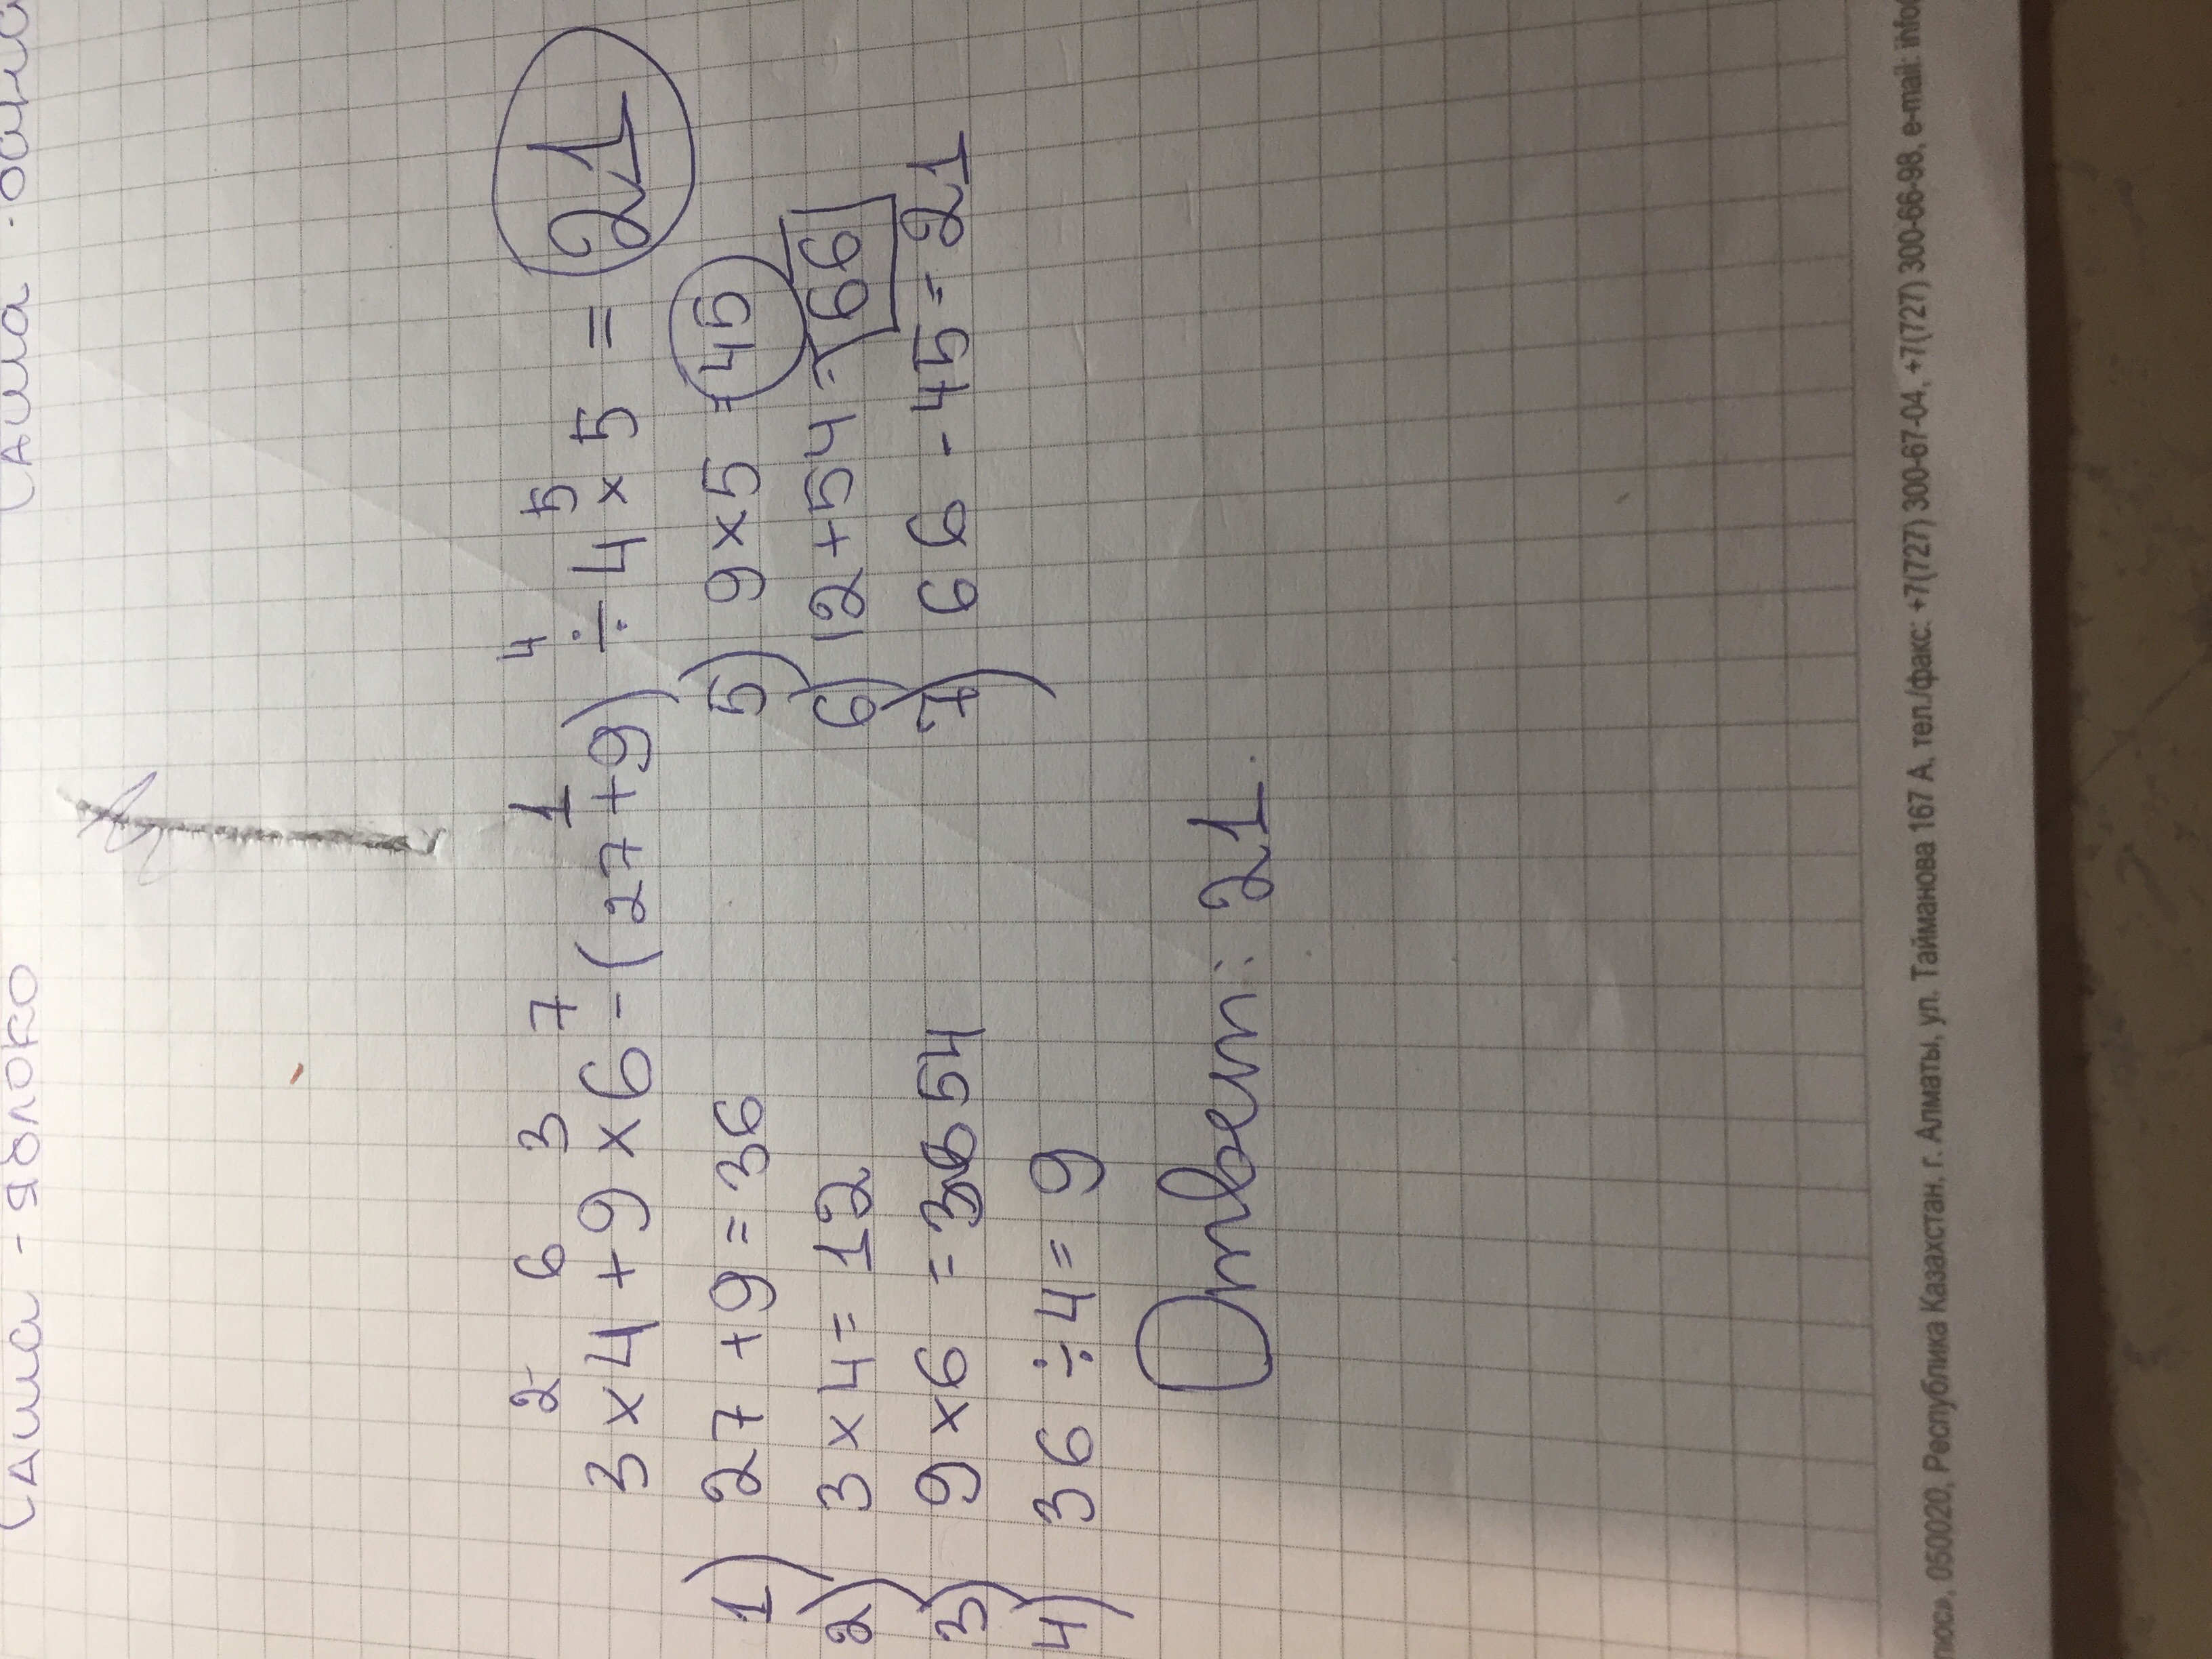 Саша - яблоко
Саша
2 6 3 7 1 4 5
3 × 4 + 9 × 6 - (27 + 9) ÷ 4 × 5 = 21
1) 27 + 9 = 36
2) 3 × 4 = 12
3) 9 × 6 = 54
4) 36 ÷ 4 = 9
5) 9 × 5 = 45
6) 12 + 54 = 66
7) 66 - 45 = 21
Ответ: 21.
050020, Республика Казахстан, г. Алматы, ул. Тайманова 167 А, тел./факс: +7(727) 300-67-04, +7(727) 300-66-98, e-mail: